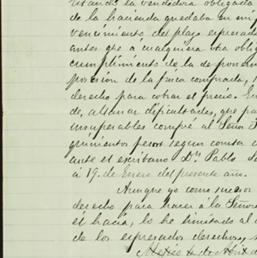 la vendedora obligada
de la hacienda quedaba en mi p
vencimiento del plazo expresado
antes que a cualquiera otra oblig
cumplimiento de la de ponerm
posesion de la finca comprada,
derecho para cobrar el precio. En
do, allanar dificultades, que pa
insuperables compré al Señor
quinientos pesos segun consta
ante el escribano Dn. Pablo
a 19 de Enero del presente año.
Aunque yo como
derecho para hacer á la Señora
el hacia, lo he limitado al
de los espresados derechos,